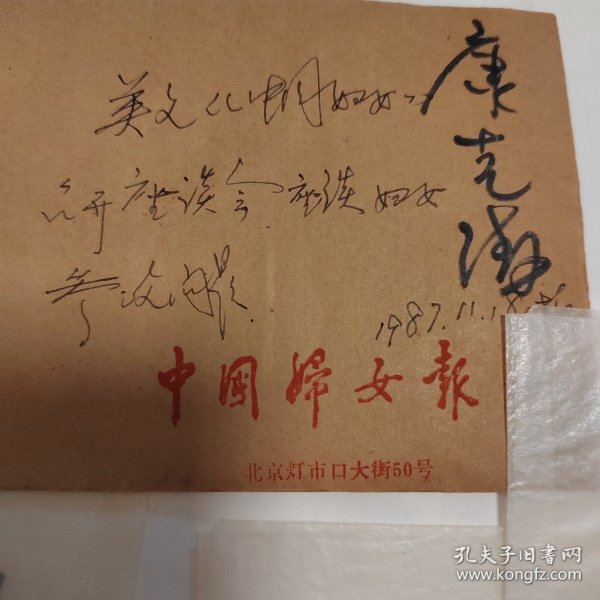 英文《中国妇女》
召开座谈会座谈妇女
参政问题.
康克清
1987.11.18
中国婦女報
北京灯市口大街50号
孔夫子旧书网
www.kongfz.com